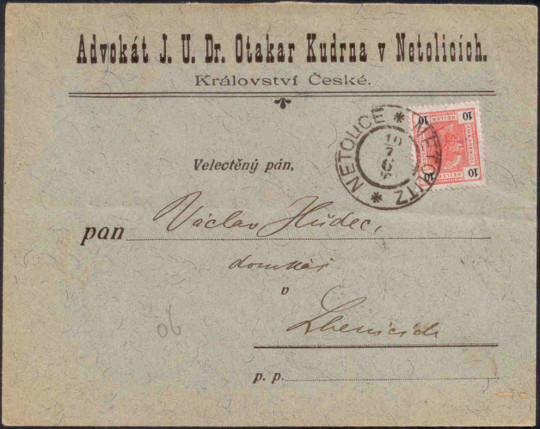 Advokát J. U. Dr. Otakar Kudrna v Netolicích.
Království České.
NETOLICE * NETOLITZ *
10
7
6
10 10
10
Velectěný pán,
pan Václav Hudec,
domkář
v
Lhenicích
p. p.
06